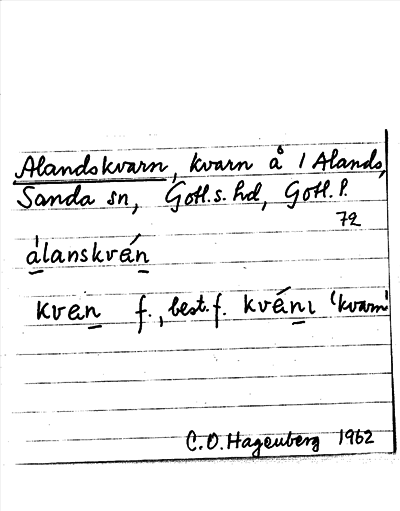 Alandskvarn, kvarn å 1 Alands,
Sanda sn, Gotl. s. hd, Gotl. l.
72
álanskván
kvan f., best. f. kvánı 'kvarn'
C. O. Hagenberg 1962